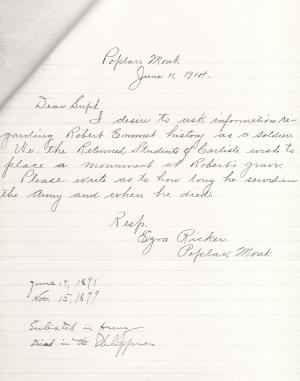 Poplar, Mont.
June 11, 1914.
Dear Supt.
I desire to ask information re-
garding Robert Emmet history as a soldier.
We. the Returned Students of Carlisle wish to
place a monument at Robert's grave.
Please write as to how long he served in
the Army and when he died.
Resp.
Ezra Ricker.
Poplar, Mont.
June 19, 1891
Nov. 15, 1899
Enlisted in Army
Died in the Philippines